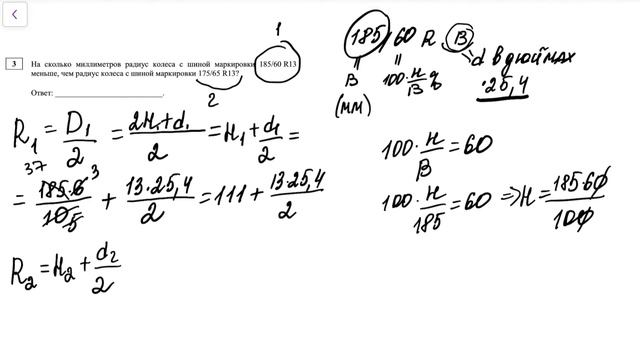 3
На сколько миллиметров радиус колеса с шиной маркировки 185/60 R13
меньше, чем радиус колеса с шиной маркировки 175/65 R13?
Ответ: ____________________________.
1
2
185/60 R 13
B
(мм)
100·H/B %
d в дюймах
·25,4
R₁ = D₁/2 = (2H₁+d₁)/2 = H₁ + d₁/2 =
37 3
= 185·6/10 5 + 13·25,4/2 = 111 + 13·25,4/2
R₂ = H₂ + d₂/2
100·H/B = 60
100·H/185 = 60 => H = 185·60/100